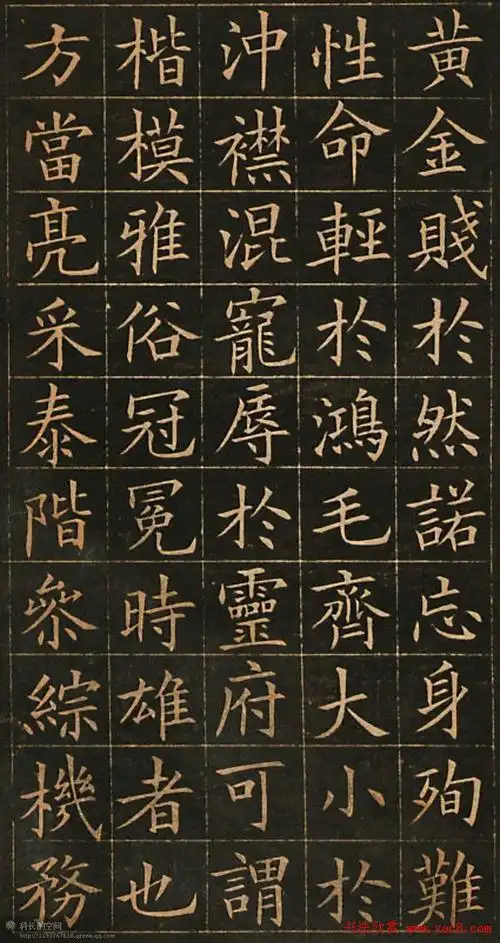 黄金賤於然諾忘身殉難
性命輕於鴻毛齊大小於
沖襟混寵辱於靈府可謂
楷模雅俗冠冕時雄者也
方當亮采泰階參綜機務
科长的空间
http://1193767618.qzone.qq.com
书法欣赏 www.yac8.com